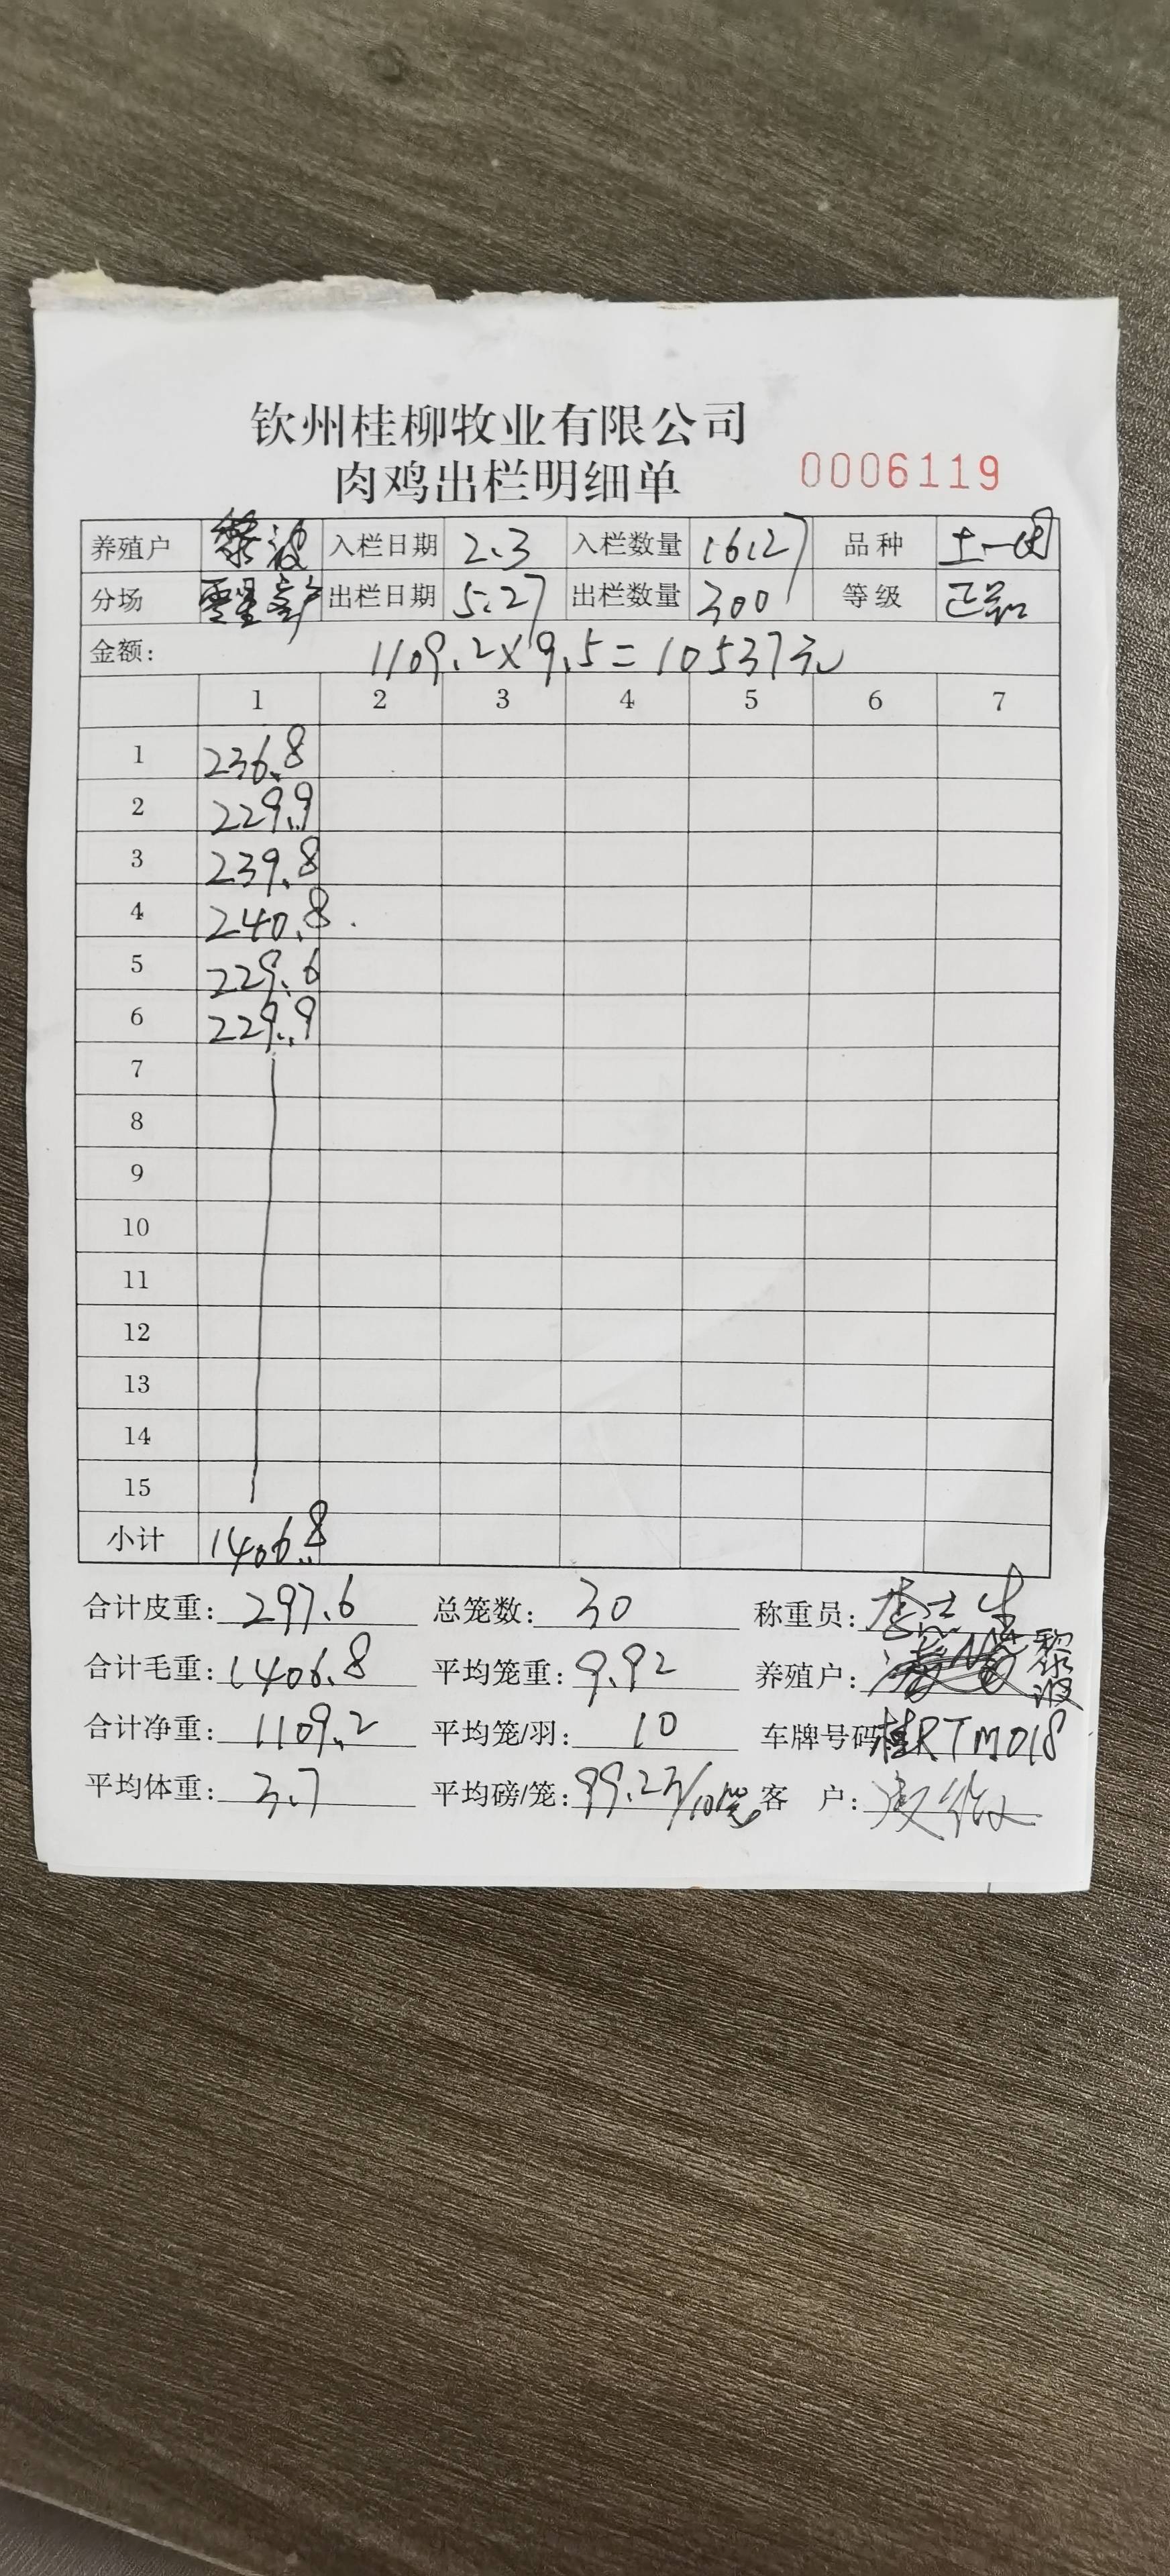 钦州桂柳牧业有限公司
肉鸡出栏明细单 0006119
养殖户 黎波 入栏日期 2.3 入栏数量 16127 品种 土一
分场 零星 出栏日期 5.27 出栏数量 300 等级 正品
金额: 1109.2×9.5=10537元
1 2 3 4 5 6 7
1 236.8
2 229.9
3 239.8
4 240.8
5 229.6
6 229.9
7
8
9
10
11
12
13
14
15
小计 1406.8
合计皮重: 297.6 总笼数: 30 称重员: 李
合计毛重: 1406.8 平均笼重: 9.92 养殖户: 黎波
合计净重: 1109.2 平均笼/羽: 10 车牌号码 桂RTM018
平均体重: 3.7 平均磅/笼: 99.2斤/10笼 客 户: